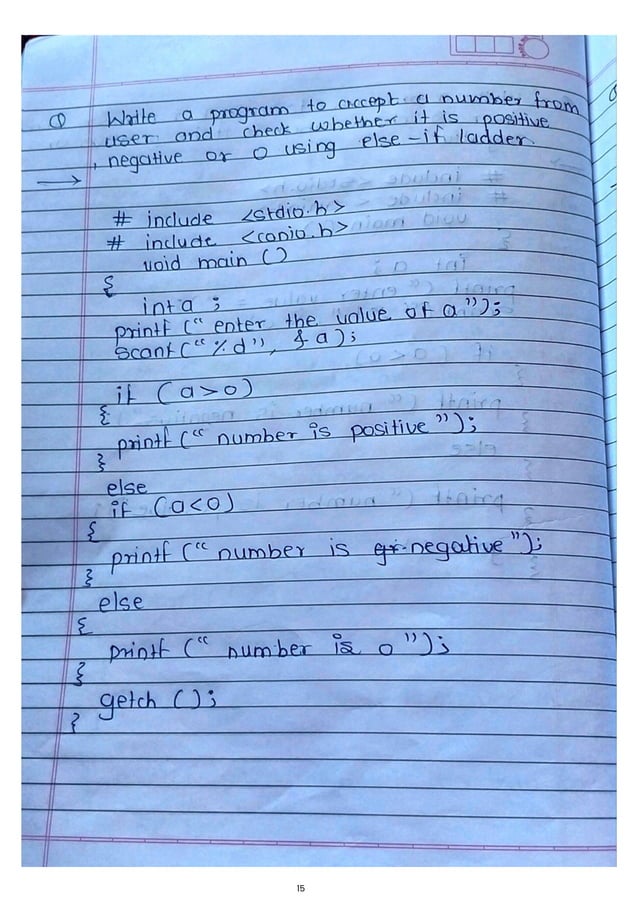 Q Write a program to accept a number from
user and check whether it is positive
, negative or 0 using else-if ladder.
→
# include <stdio.h>
# include <conio.h>
void main ()
{
int a ;
printf (" enter the value of a ");
scanf (" %d ", & a );
if ( a > 0 )
{
printf (" number is positive ");
}
else
if ( a < 0 )
{
printf (" number is negative ");
}
else
{
printf (" number is 0 ");
}
getch ();
}
15